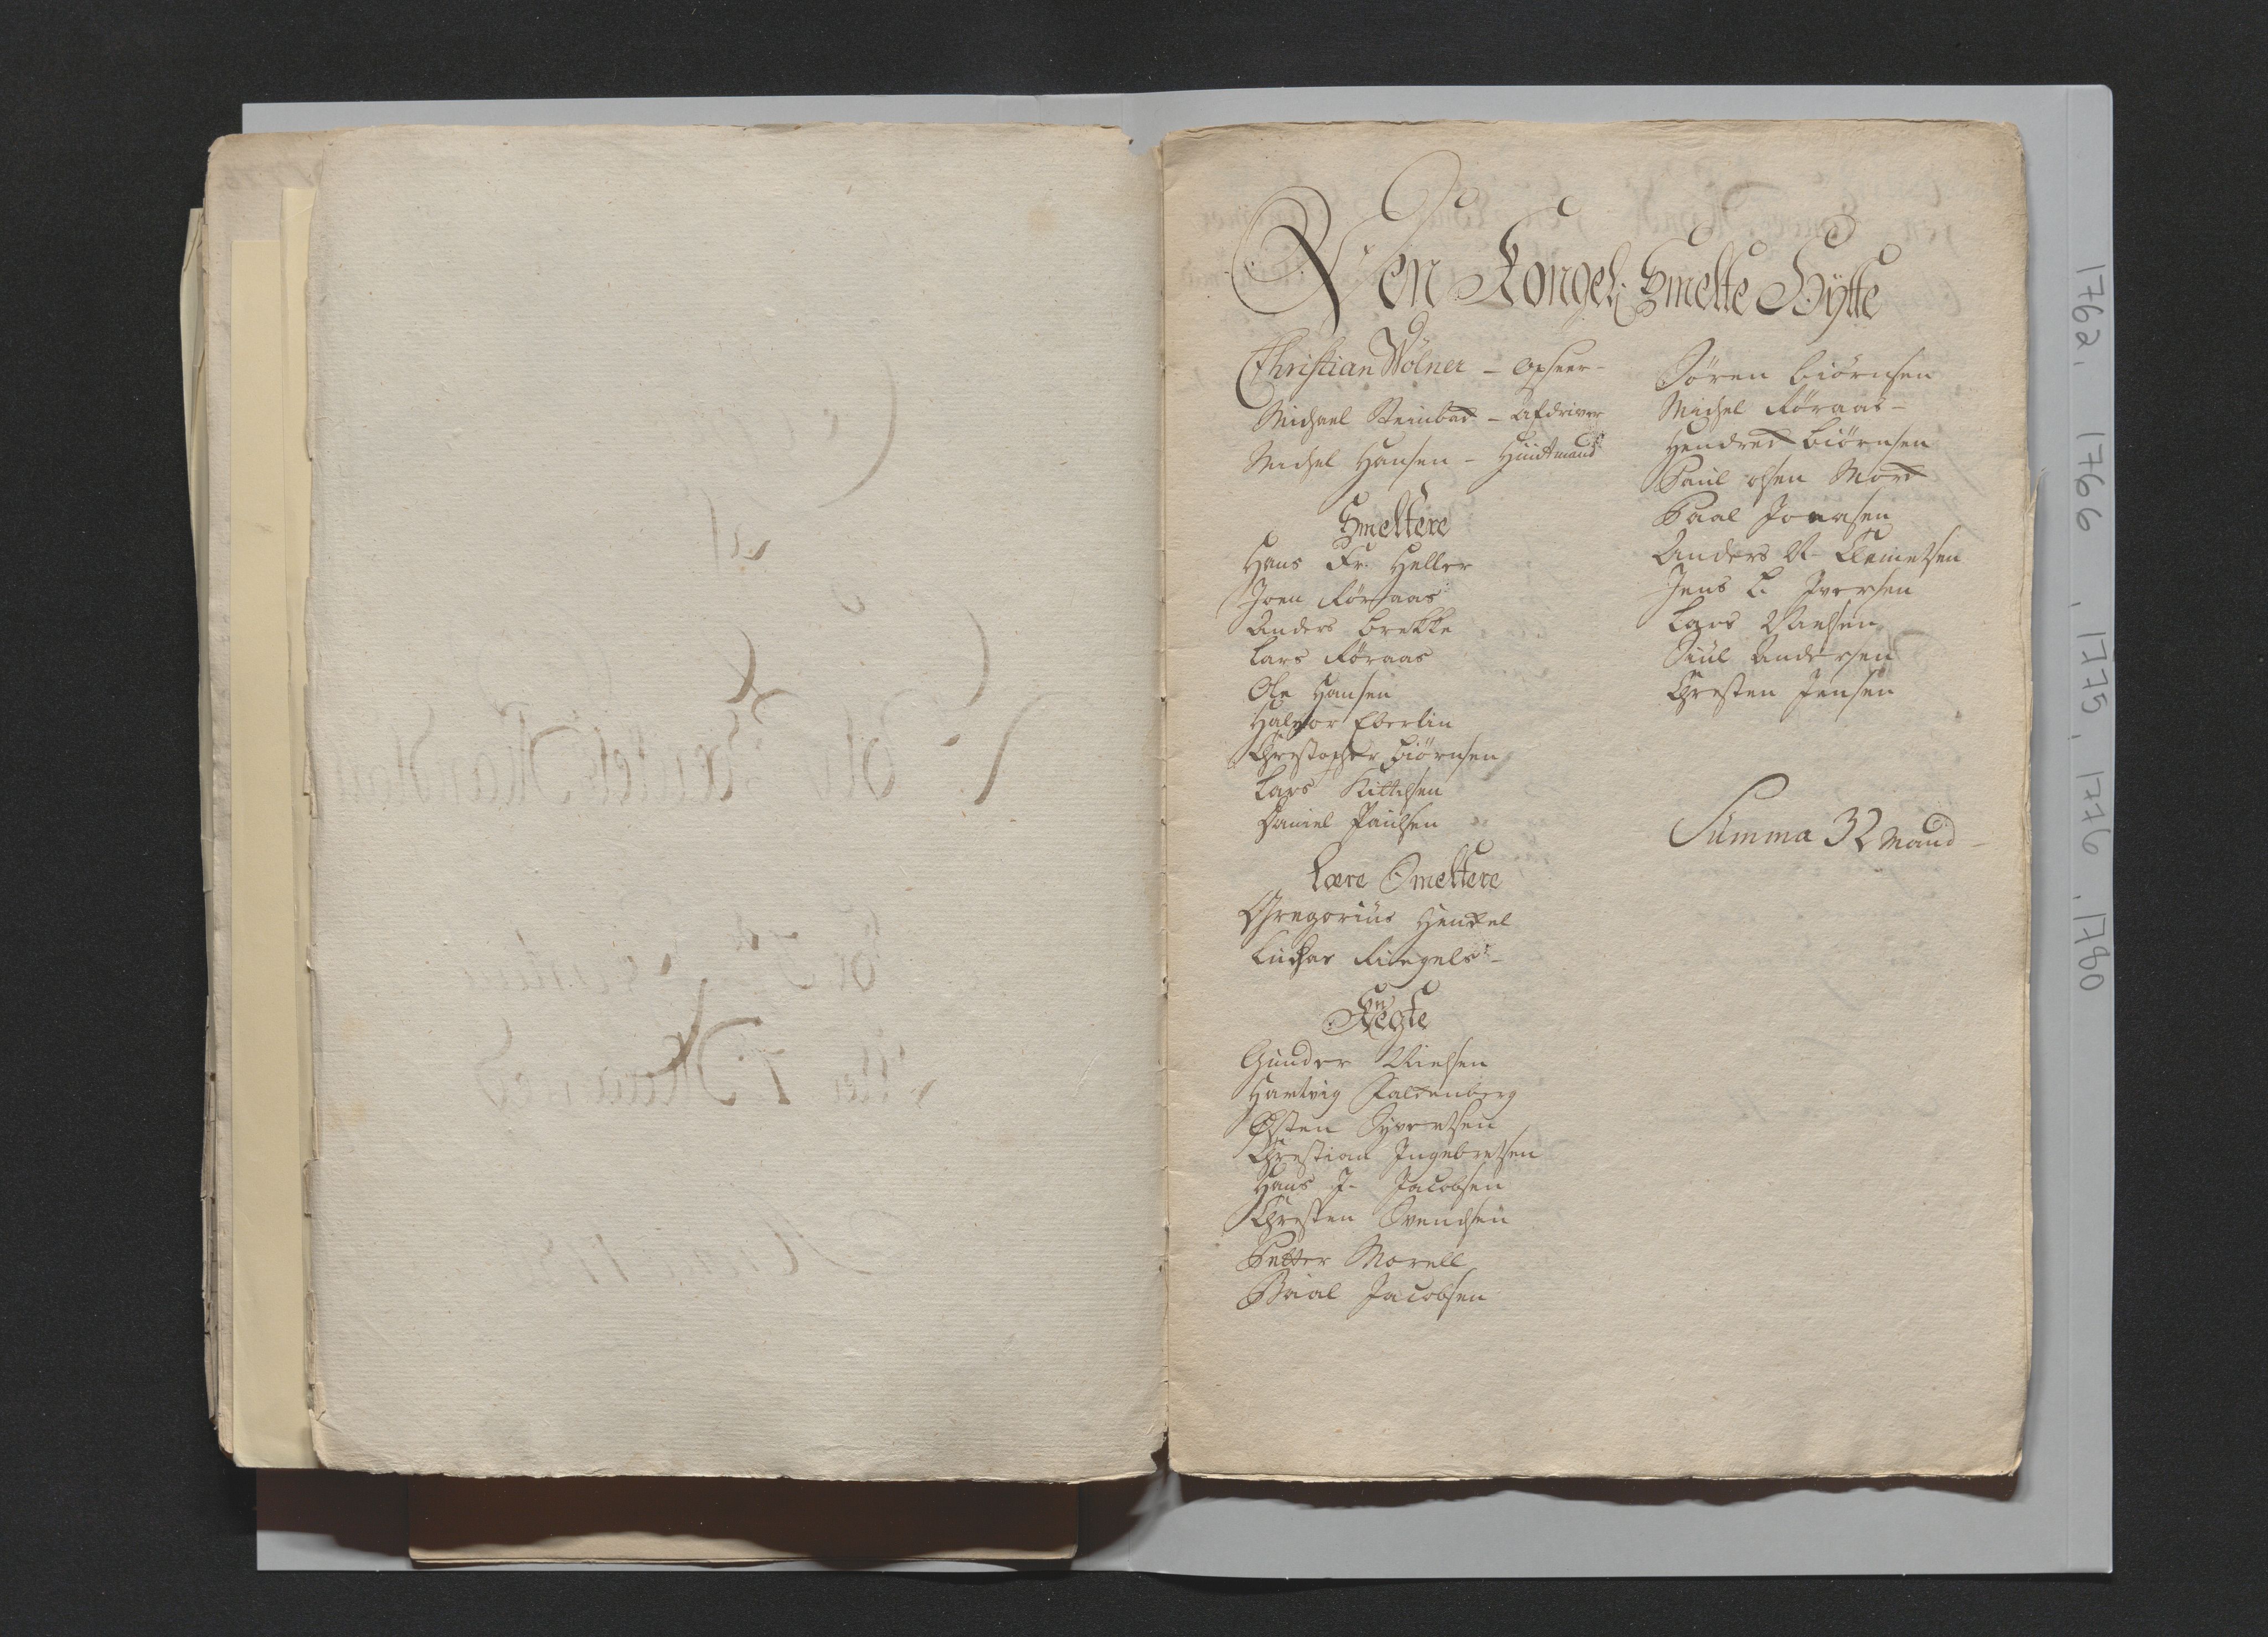 Den Kongel: Smelte Hytte
Christian Wölner – Opseer –
Michael Steinbac – Afdriver
Michel Hansen – Hüttmand
Smeltere
Hans Fr. Heller
Joen Røraas
Anders Brekke
Lars Røraas
Ole Hansen
Halvor Eberlin
Christopher Biörnsen
Lars Kittilsen
Daniel Paulsen
Lære Smeltere
Gregorius Henckel
Lucas Riegels –
Knegte
Gunder Nielsen
Hartvig Falckenberg
Østen Syvertsen
Christian Ingebretsen
Hans J. Jacobsen
Christen Svendsen
Petter Morell
Paal Jacobsen
Sören Biörnsen
Michel Røraas –
Hendrich Biörnsen
Paul Olsen Morck
Paal Jonasen
Anders N. Clemetsen
Jens L. Iversen
Lars Nielsen
Juul Andersen
Christen Jensen
Summa 32 Mand –
1762. 1766. 1775, 1776. 1780